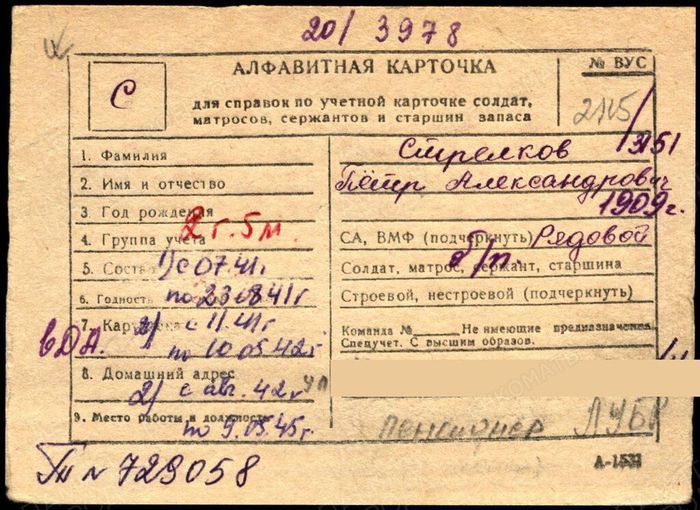 20/3978
АЛФАВИТНАЯ КАРТОЧКА
№ ВУС
С
для справок по учетной карточке солдат,
матросов, сержантов и старшин запаса
1. Фамилия
Стрелков
3151
2. Имя и отчество
Пётр Александрович
3. Год рождения
1909г.
2 г. 5 м.
4. Группа учета
СА, ВМФ (подчеркнуть) Рядовой
5. Состав
1) с 07.41г
Солдат, матрос, сержант, старшина
б/п.
6. Годность
по 23.08.41г
Строевой, нестроевой (подчеркнуть)
7.
2) с 11.41г
Команда № Не имеющие предназначения
Спецучет. С высшим образов.
по 10.05.42г
8. Домашний адрес
2) с авг. 42г
9. Место работы и должность
по 9.05.45г
пенсионер
729058
А-1531